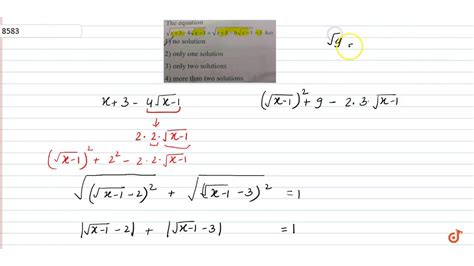 8583
The equation
√x+3-4√x-1 + √x+8-6√x-1 = 1 has
1) no solution
2) only one solution
3) only two solutions
4) more than two solutions
√9 =
x+3 - 4√x-1
(√x-1)² + 9 - 2·3·√x-1
2·2·√x-1
(√x-1)² + 2² - 2·2·√x-1
√(√x-1 - 2)² + √(√x-1 - 3)² = 1
|√x-1 - 2| + |√x-1 - 3| = 1